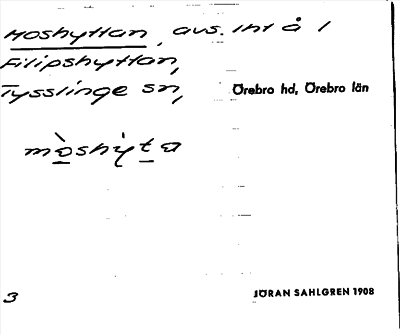 Moshyttan, avs. int å 1
Filipshyttan,
Tysslinge sn,
Örebro hd, Örebro län
mo̲shyt̲a
3
JÖRAN SAHLGREN 1908